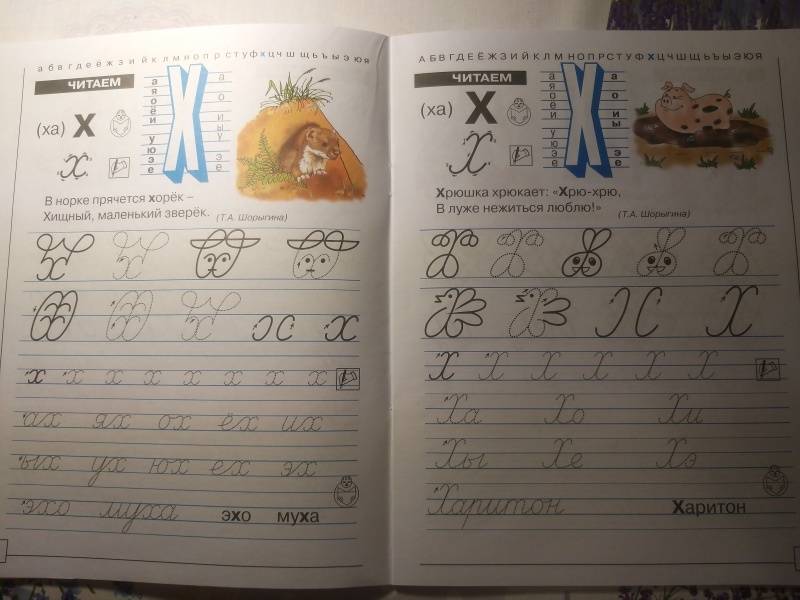 а б в г д е ё ж з и й к л м н о п р с т у ф х ц ч ш щ ъ ы ь э ю я
ЧИТАЕМ
(ха) х
х
а
я
о
ё
и
у
ю
э
е
Х
а
о
и
ы
у
э
е
В норке прячется хорёк –
Хищный, маленький зверёк. (Т.А. Шорыгина)
х х
х
х х х х х х х х
ах ях ох ёх их
ых ух юх ех эх
эхо муха эхо муха
А Б В Г Д Е Ё Ж З И Й К Л М Н О П Р С Т У Ф Х Ц Ч Ш Щ Ь Ъ Ы Э Ю Я
ЧИТАЕМ
(ха) Х
Х
а
я
о
ё
и
у
ю
э
е
Х
а
о
и
ы
э
е
Хрюшка хрюкает: «Хрю-хрю,
В луже нежиться люблю!» (Т.А. Шорыгина)
Х
Х Х Х Х Х Х
Ха Хо Хи
Хы Хе Хэ
Харитон Харитон